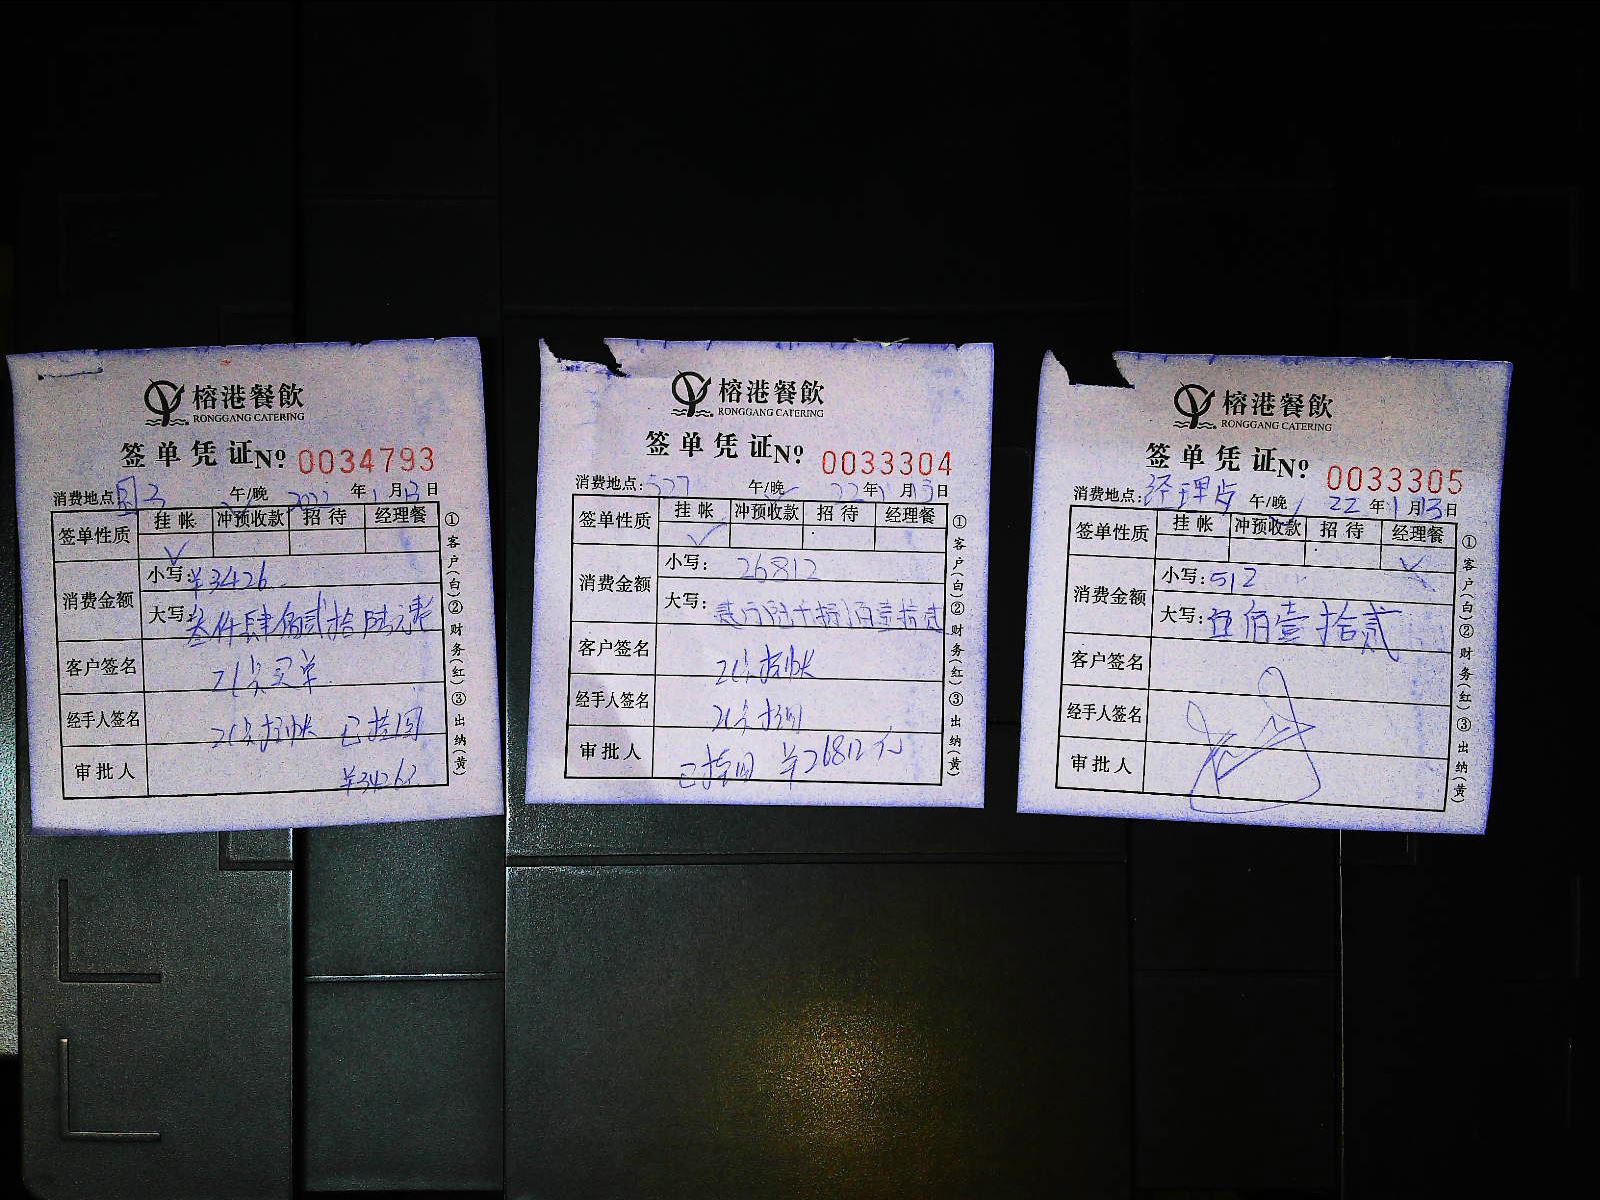 榕港餐飲
RONGGANG CATERING
签单凭证 No 0034793
消费地点: 3 午/晚 2022年1月13日
签单性质 挂帐 冲预收款 招待 经理餐
✓
消费金额
小写: ¥3426
大写: 叁仟肆佰贰拾陆元整
客户签名 买单
经手人签名 挂帐 已挂
审批人 ¥3426
①客户(白)②财务(红)③出纳(黄)
榕港餐飲
RONGGANG CATERING
签单凭证 No 0033304
消费地点: 527 午/晚 22年1月13日
签单性质 挂帐 冲预收款 招待 经理餐
✓
消费金额
小写: 26812
大写: 贰万陆千捌佰壹拾贰
客户签名 挂帐
经手人签名
审批人 已挂 ¥26812元
①客户(白)②财务(红)③出纳(黄)
榕港餐飲
RONGGANG CATERING
签单凭证 No 0033305
消费地点: 经理房 午/晚 22年1月13日
签单性质 挂帐 冲预收款 招待 经理餐
✓
消费金额
小写: 512
大写: 伍佰壹拾贰
客户签名
经手人签名
审批人
①客户(白)②财务(红)③出纳(黄)